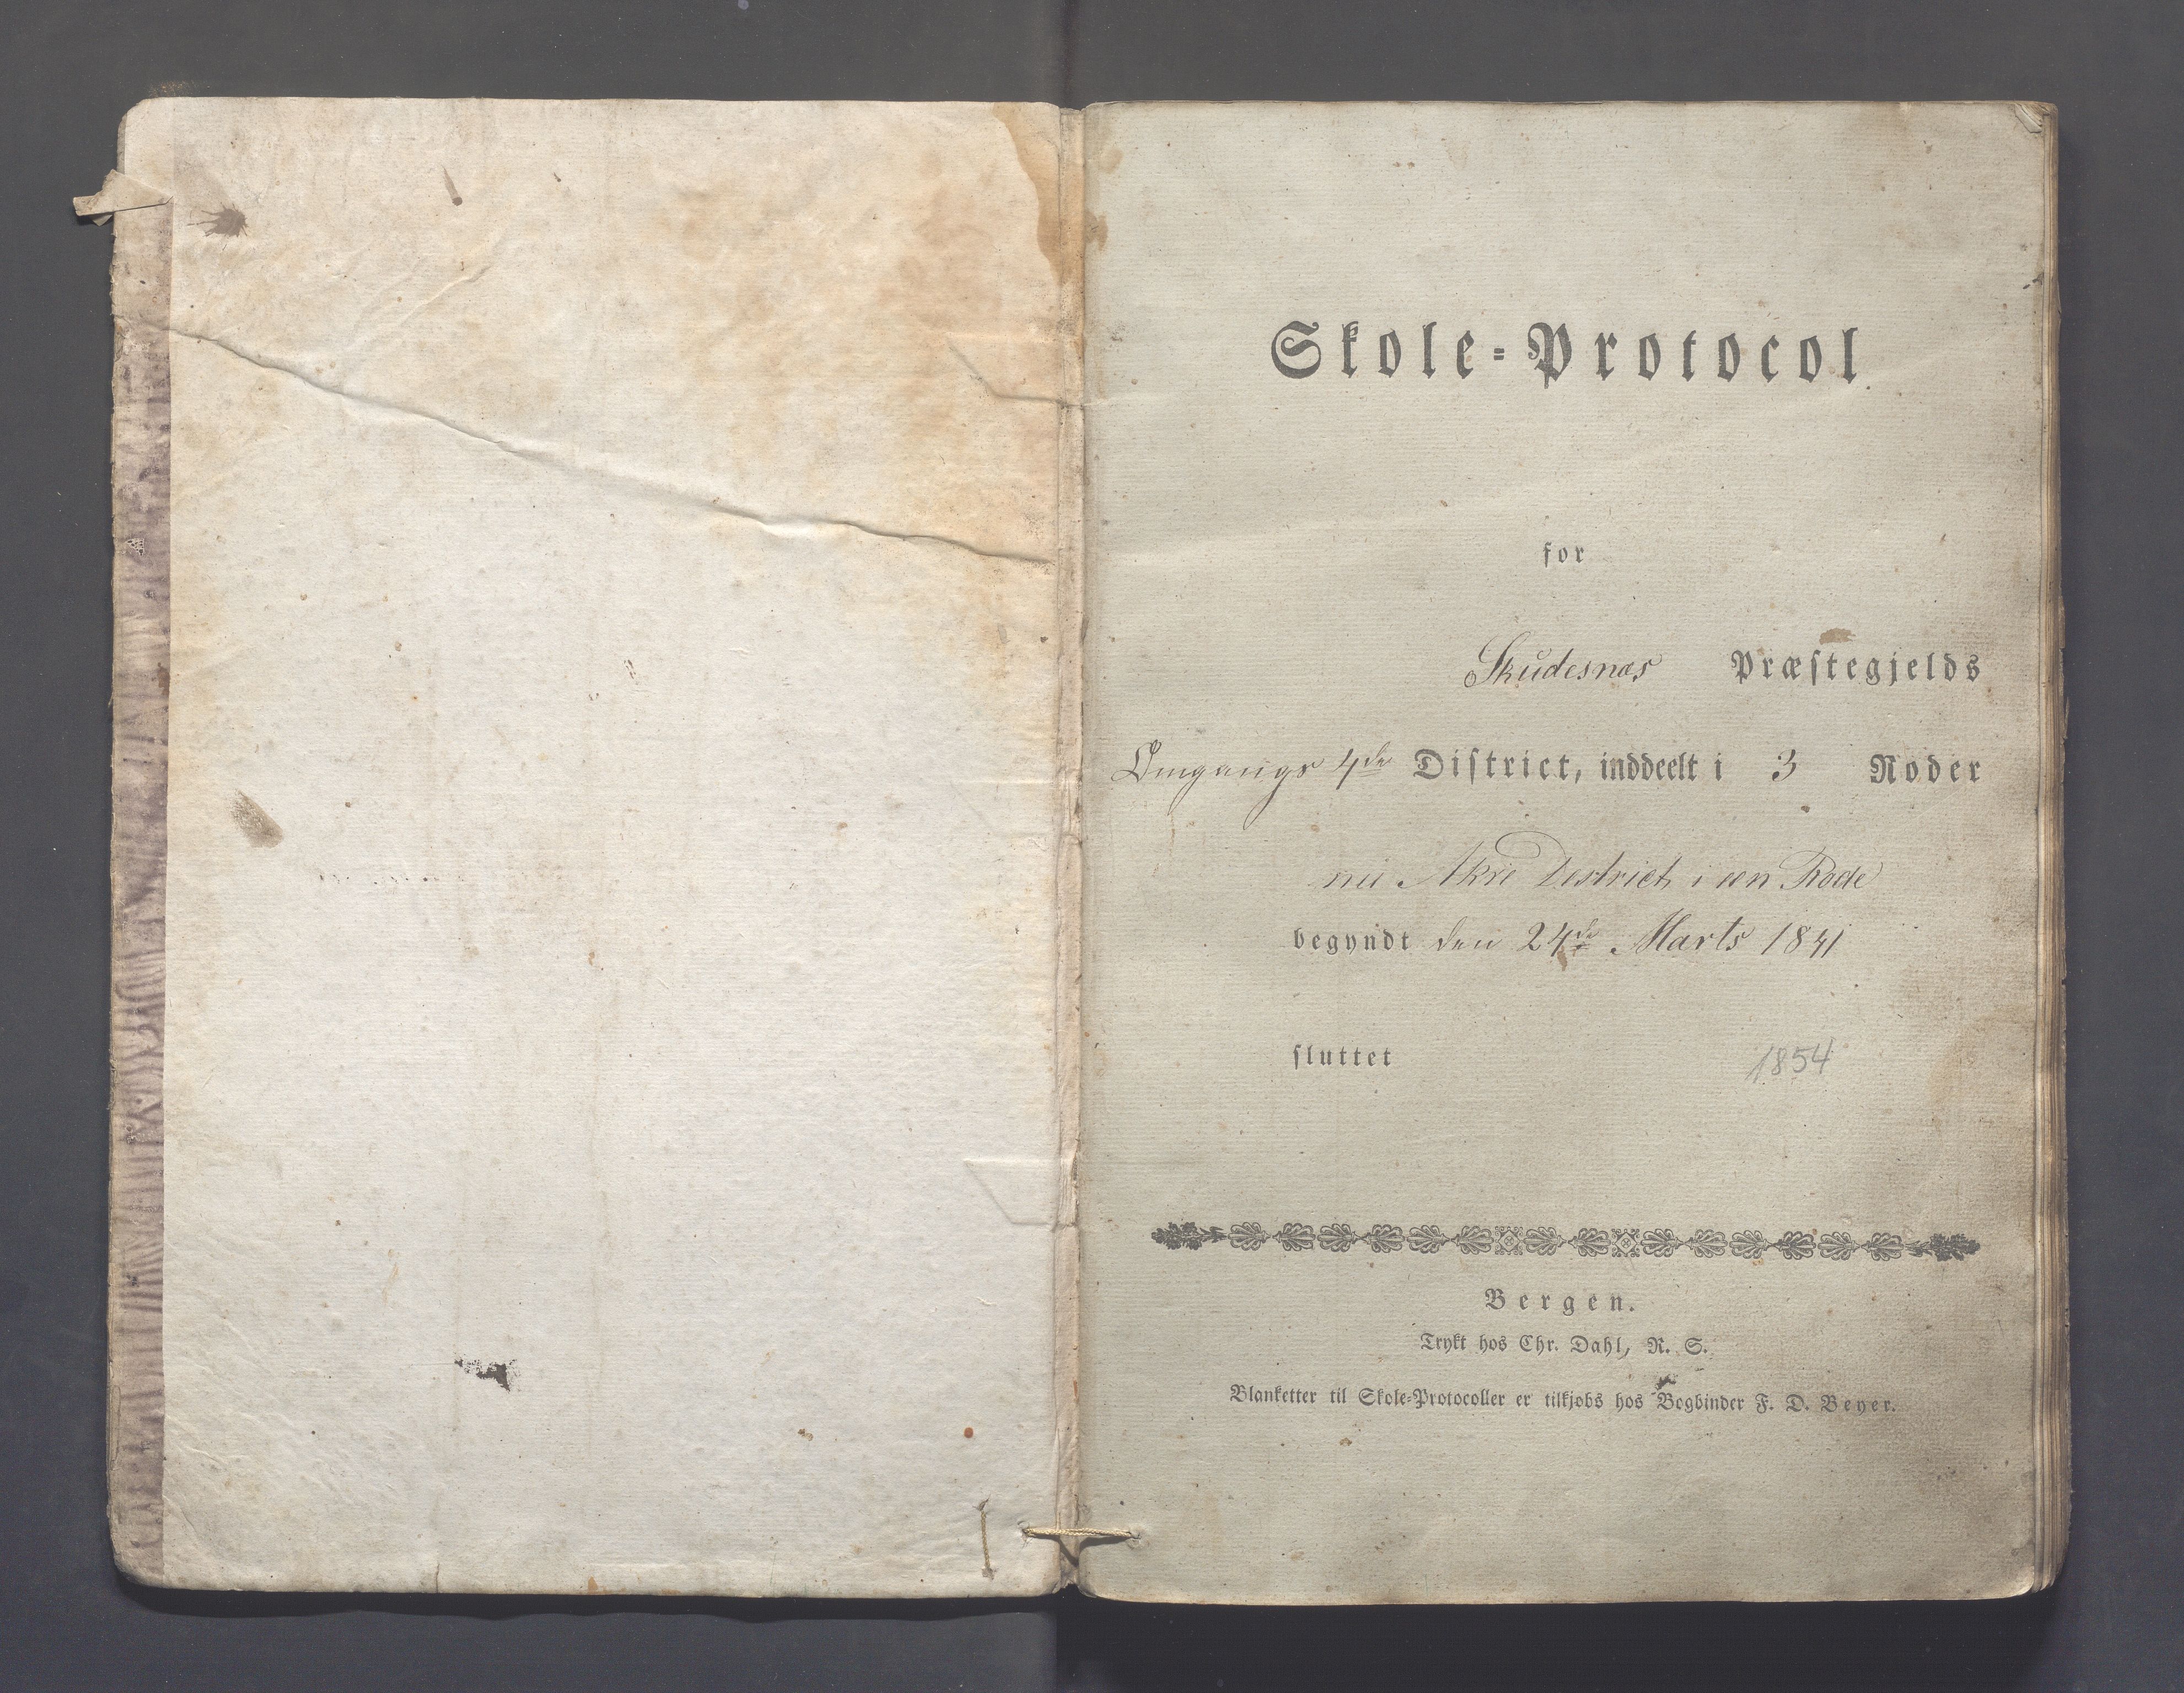 Skole-Protocol
for
Skudesnæs Præstegjelds
Omgangs 4de District, inddeelt i 3 Roder
nu Akre District i een Rode
begyndt den 24de Marts 1841
sluttet 1854
Bergen.
Trykt hos Chr. Dahl, R. S.
Blanketter til Skole-Protocoller er tilkjøbs hos Bogbinder F. D. Beyer.